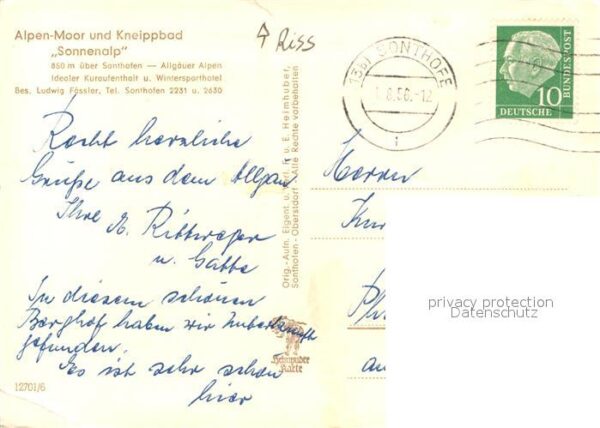 Alpen-Moor und Kneippbad
„Sonnenalp"
850 m über Sonthofen — Allgäuer Alpen
Idealer Kuraufenthalt u. Wintersporthotel
Bes. Ludwig Fässler, Tel. Sonthofen 2231 u. 2630
Riss
(13b) SONTHOFE
.8.56.-12
DEUTSCHE
BUNDESPOST
10
Recht herzliche
Grüße aus dem Allgäu
Ihre R. Rittweger
u. Gatte
In diesem schönen
Berghof haben wir Unterkunft
gefunden.
Es ist sehr schön
hier
Orig.-Aufn. Eigent. u. Verl. F. u. E. Heimhuber,
Sonthofen-Oberstdorf - Alle Rechte vorbehalten
Heimhuber
Karte
12701/6
Herrn
Kur
an
privacy protection
Datenschutz